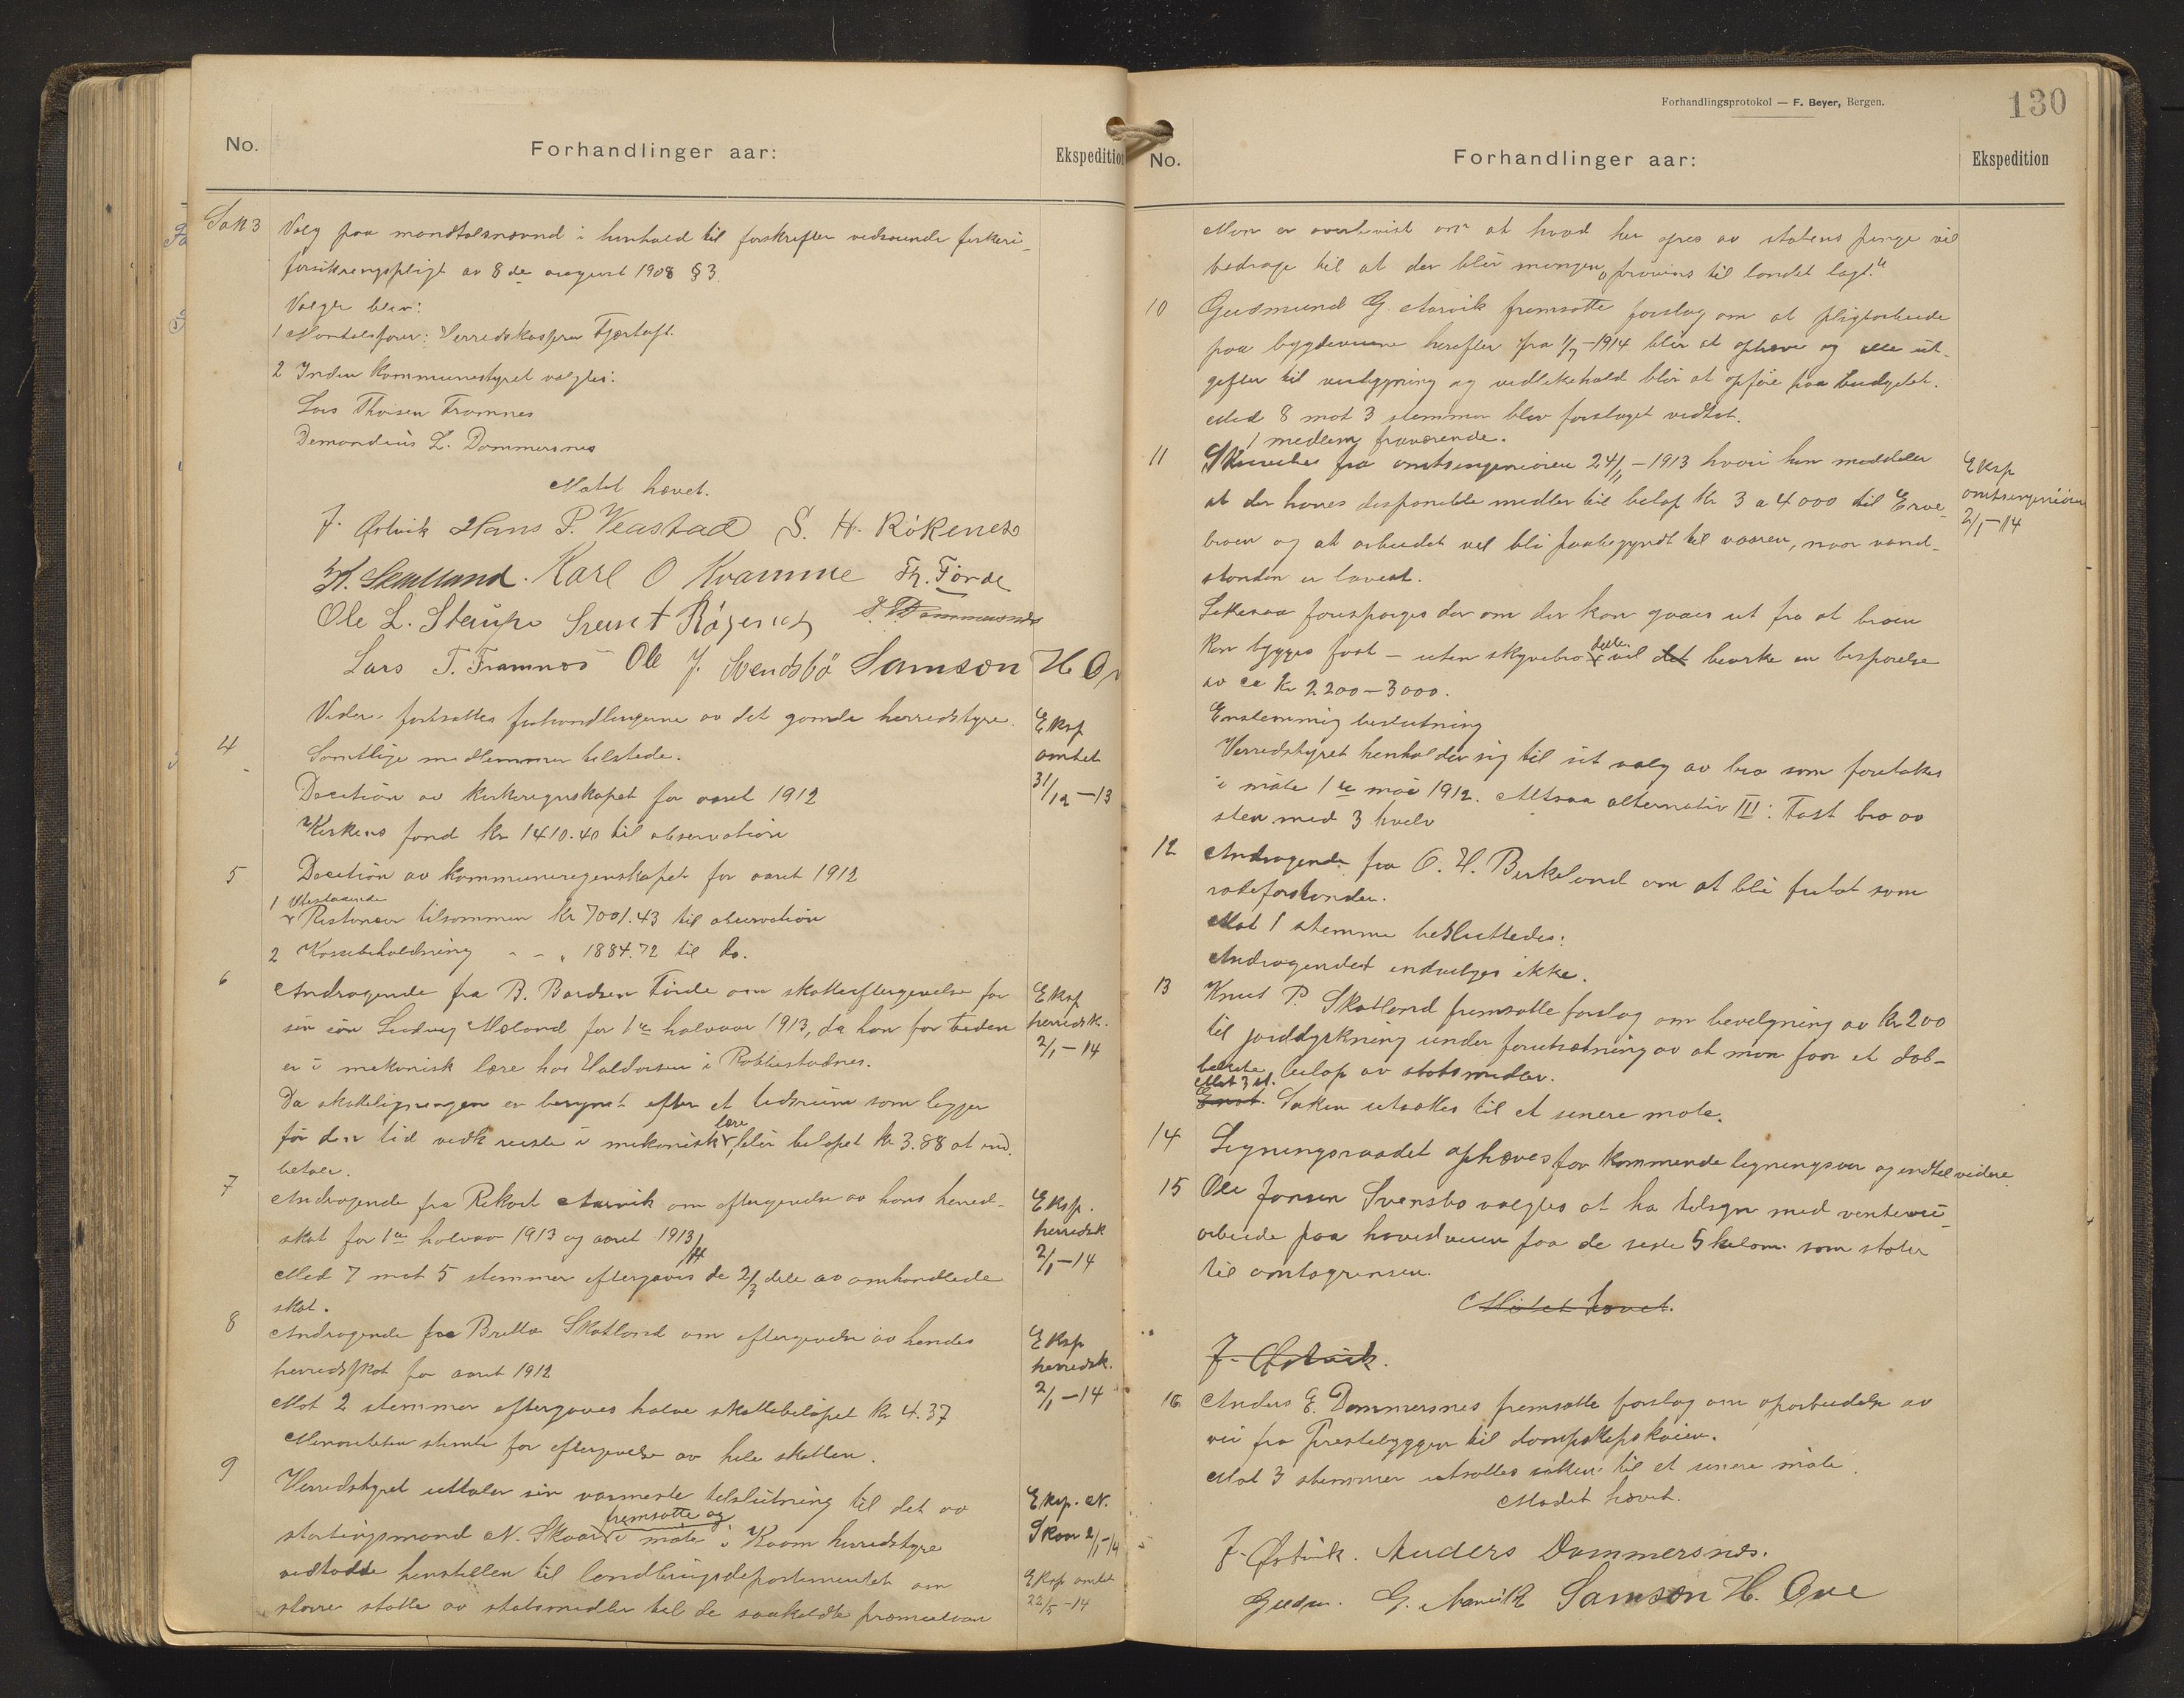 No.
Forhandlinger aar:
Ekspedition
Sak 3
Valg paa mandtalsnævnd i henhold til forskrifter vedrørende fiskeri-
forsikringspligt av 8de august 1908 § 3.
Valgte blev:
1 Mantalsfører: Herredskasserer Fjærtoft.
2 Inden kommunestyret valgtes:
Lars Thoisen Framnes
Demandius L. Dommersnes
Møtet hævet.
J. Østvik Hans P. Veastad S. H. Rökenes
K. Skatland. Karl O Kvamme Th. Förde
Ole L. Steinpo D. Dommersnes
Lars T. Framnes Ole J. Svendsbö Samson H. Ove
Videre fortsattes forhandlingerne av det gamle herredstyre.
4
Samtlige medlemmer tilstede.
Eksp
amtet
31/12 - 13
Decition av kirkeregnskapet for aaret 1912
Kirkens fond kr 1410.40 til observation
5
Decition av kommuneregnskapet for aaret 1912
1 Utestaaende
Restanser tilsammen kr 7001.43 til observation
2 Kassebeholdning - - " 1884.72 til do.
6
Andragende fra B. Bardsen Förde om skatteeftergivelse for
sin søn Ludvig Mæland for 1ste halvaar 1913, da han for tiden
er i mekanisk lære hos Haldorsen i Rubbestadnes.
Eksp
herredsk.
2/1 - 14
Da skatteligningen er beregnet efter et tidsrum som ligger
før den tid vedk reiste i mekanisk lære blir beløpet kr 3.88 at ind
betale.
7
Andragende fra Rikard Aarvik om eftergivelse av hans herred-
skat for 1ste halvaar 1913 og aaret 1913/14
Eksp.
herredsk
2/1 - 14
Med 7 mot 5 stemmer eftergaves de 2/3 dele av omhandlede
skat.
8
Andragende fra Britta Skatland om eftergivelse av hendes
herredsskat for aaret 1912
Eksp
herredsk.
2/1 - 14
Mot 2 stemmer eftergaves halve skattebeløpet kr 4.37
Minoriteten stemte for eftergivelse av hele skatten.
9
Herredstyret uttaler sin varmeste tilslutning til det av
stortingsmand N. Skaar fremsatte og i møte i Kvam herredstyre
vedtadde henstillen til landbruksdepartementet om
større støtte av statsmidler til de saakaldte
Eksp. N.
Skaar 2/1 - 14
Eksp amtet
22/5 - 14
Forhandlingsprotokol — F. Beyer, Bergen.
130
No.
Forhandlinger aar:
Ekspedition
Man er overbevist om at hvad her ofres av statens penge vil
bedrage til at der blir mangen "provins til landet lagt."
10
Gudmund G. Aarvik fremsatte forslag om at pligtarbeide
paa bygdeveiene herefter fra 1/7 - 1914 blir at ophæve og alle ut-
gifter til veibygning og vedlikehold blir at opføre paa budgetet.
Med 8 mot 3 stemmer blev forslaget vedtat.
1 medlem fraværende.
11
Skrivelse fra amtsingeniøren 24/11 - 1913 hvori han meddeler
at der haves disponible midler til beløp kr 3 a 4000 til Erve-
broen og at arbeidet vil bli paabegyndt til vaaren, naar vand-
standen er lavest.
Eksp
amtsingeniøren
2/1 - 14
Likesaa forespørges der om der kan gaaes ut fra at broen
kan bygges fast – uten skyvebro – dette vil det bevirke en besparelse
av ca kr 2200 - 3000.
Enstemmig beslutning
Herredstyret henholder sig til sit valg av bro som foretokes
i møte 1ste mai 1912. Altsaa alternativ III: Fast bro av
sten med 3 hvelv
12
Andragende fra O. H. Birkeland om at bli fritat som
rodeforstander.
Mot 1 stemme besluttedes:
Andragendet indvilges ikke.
13
Knut P. Skatland fremsatte forslag om bevilgning av kr 200
til jorddyrkning under forutsætning av at man faar et dob-
belt beløp av statsmidler.
Mot 3 st.
Enst. Saken utsættes til et senere møte.
14
Ligningsraadet ophæves for kommende ligningsaar og indtil videre.
15
Ole Jonsen Svensbø valgtes at ha tilsyn med vintervei-
arbeide paa hovedveien paa de siste 5 kilom. som støter
til amtsgrensen.
Møtet hævet.
J. Østvik.
16
Anders E. Dommersnes fremsatte forslag om oparbeidelse av
vei fra Prestebryggen til dampskipskaien.
Mot 3 stemmer utsattes saken til et senere møte.
Mødet hævet.
J. Østvik. Anders Dommersnes.
Gudm. G. Aarvik Samson H. Ove